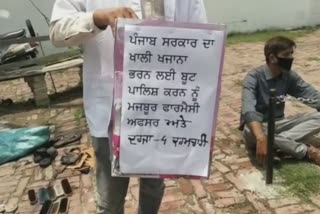 ਪੰਜਾਬ ਸਰਕਾਰ ਦਾ
ਖਾਲੀ ਖਜਾਨਾ
ਭਰਨ ਲਈ ਬੂਟ
ਪਾਲਿਸ਼ ਕਰਨ ਨੂੰ
ਮਜਬੂਰ ਫਾਰਮੇਸੀ
ਅਫਸਰ ਅਤੇ
ਦਰਜਾ-4 ਕਰਮਚਾਰੀ